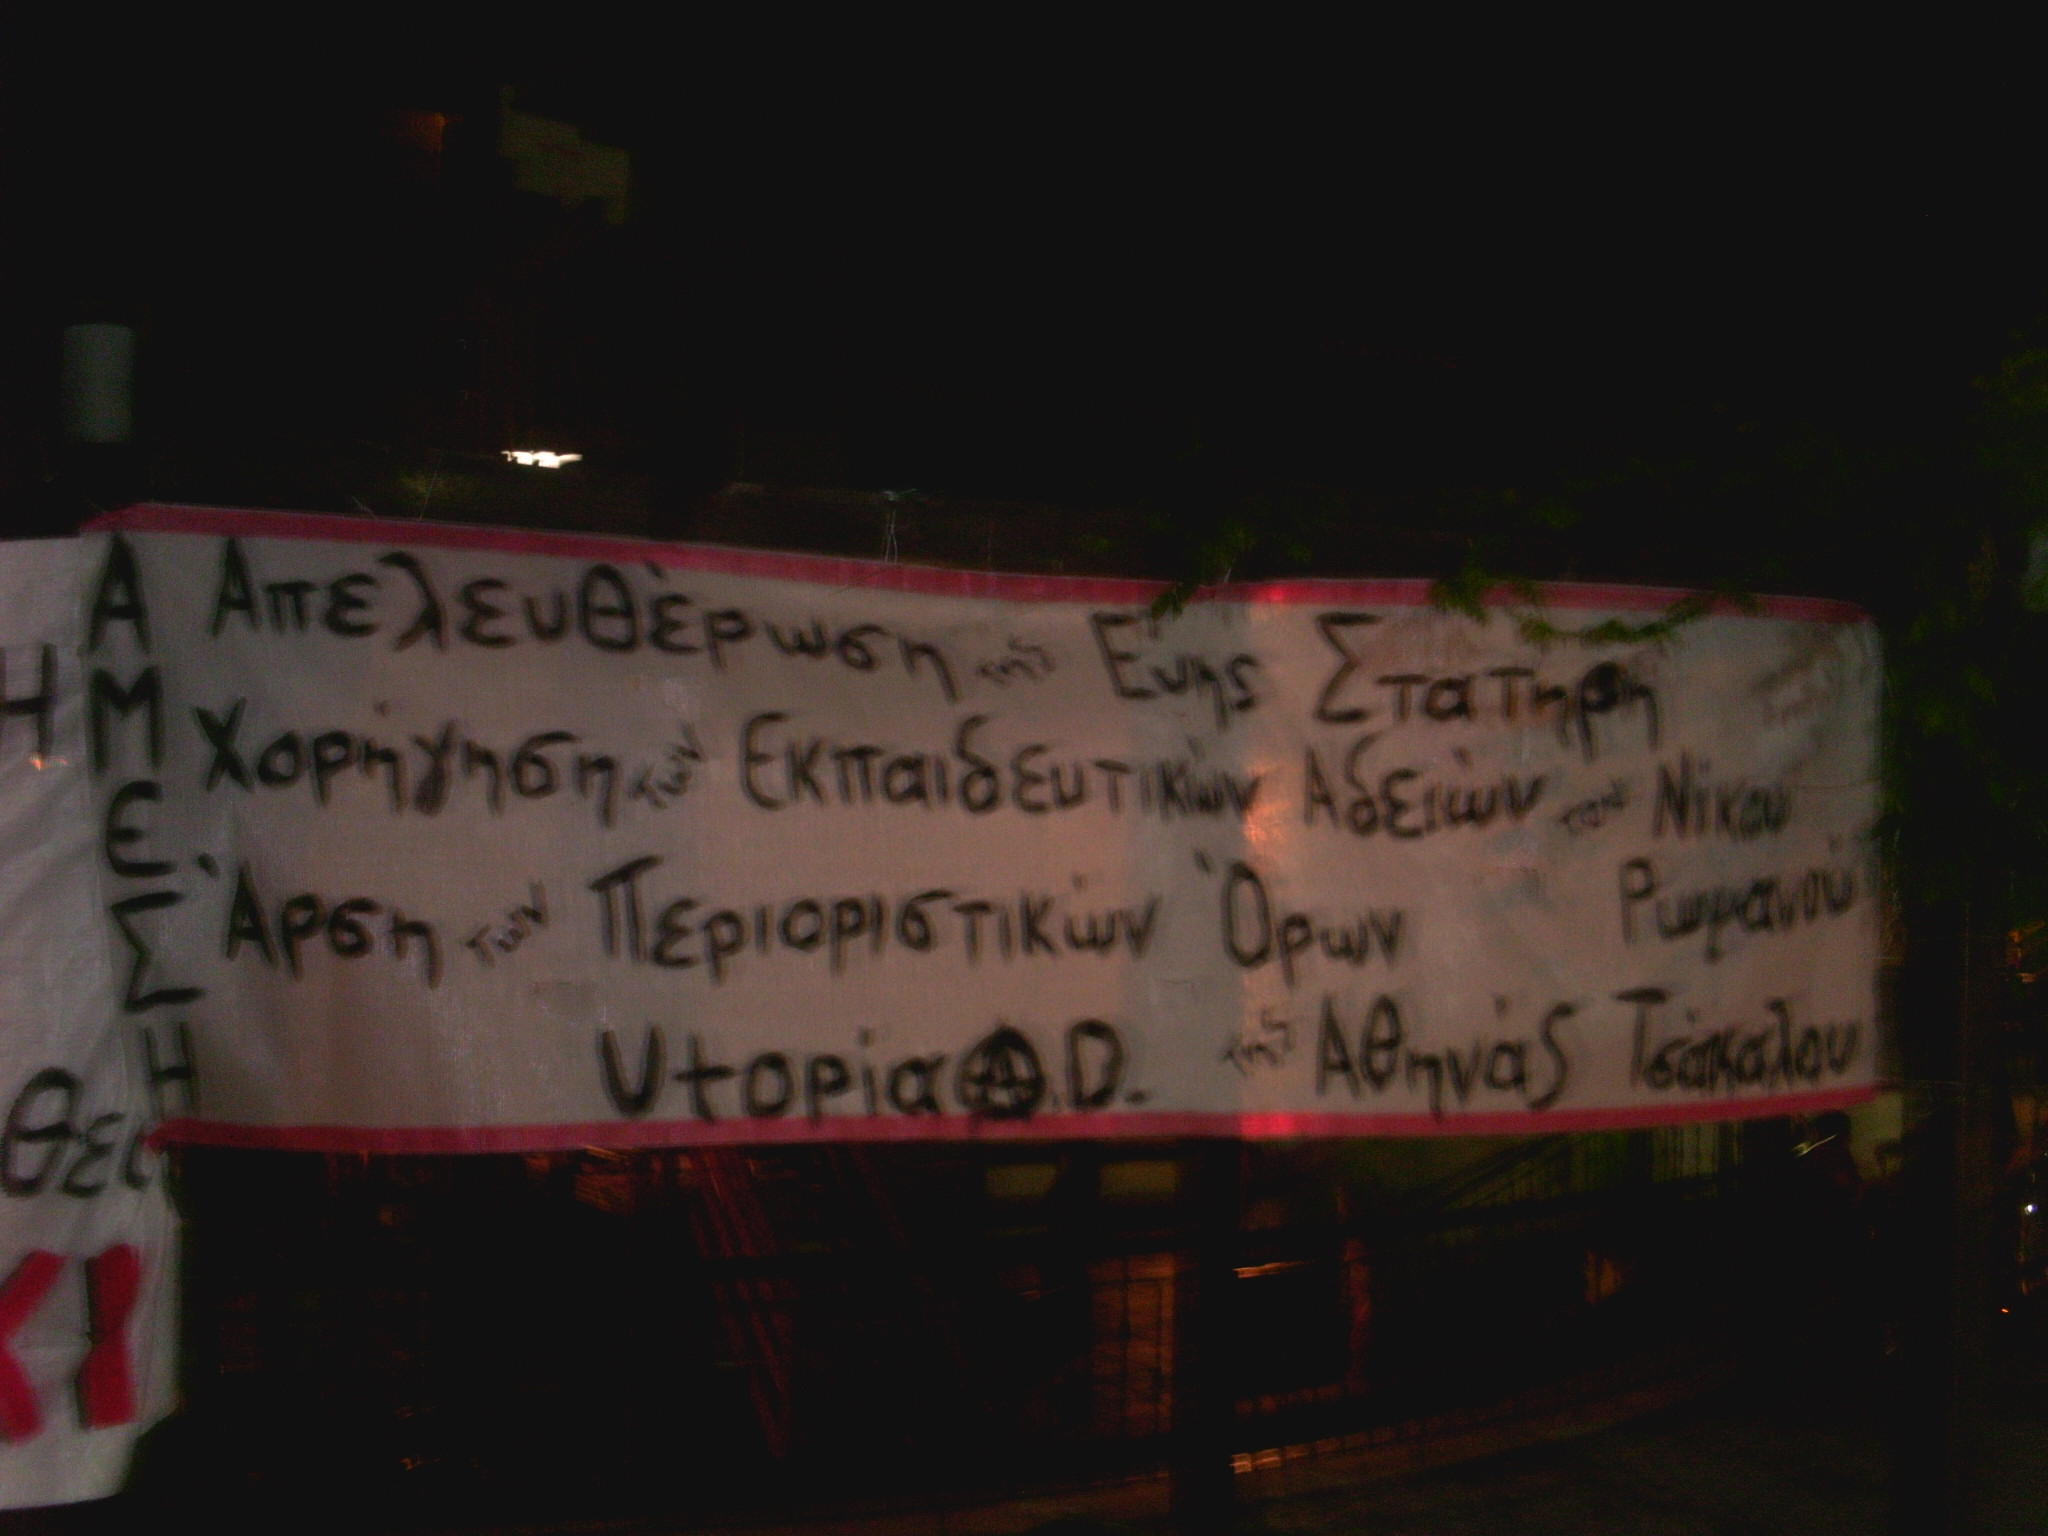 ΑΜΕΣΗ
Απελευθέρωση της Εύης Στατήρη
Χορήγηση των Εκπαιδευτικών Αδειών του Νίκου
Ρωμανού
Άρση των Περιοριστικών Όρων
της Αθηνάς Τσάκαλου
Utopία A.D.
Η
θες
ΚΙ